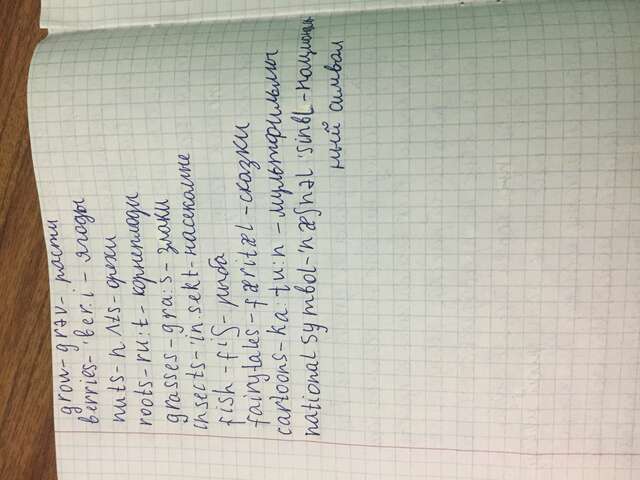 grow-grəv-расти
berries-'ber.i-ягоды
nuts-nʌts-орехи
roots-ru:t-корнеплоды
grasses-gra:s-злаки
insects-in sekt-насекомые
fish-fiʃ-рыба
fairytales-færitæl-сказки
cartoons-ka:tu:n-мультфильмы
national symbol-næʃnəl 'sinbL-националь
ный символ